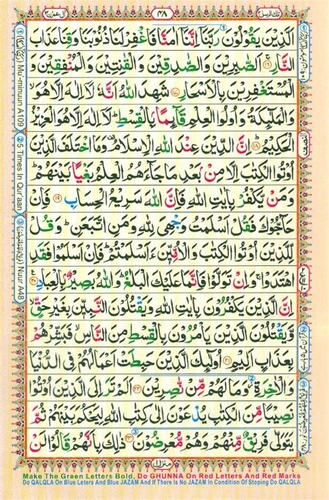 تلك الرسل ٣
٣٨
اٰل عمرٰن ٣
اَلَّذِيْنَ يَقُوْلُوْنَ رَبَّنَاۤ اِنَّنَاۤ اٰمَنَّا فَاغْفِرْ لَنَا ذُنُوْبَنَا وَقِنَا عَذَابَ
النَّارِ ۞ اَلصّٰبِرِيْنَ وَالصّٰدِقِيْنَ وَالْقٰنِتِيْنَ وَالْمُنْفِقِيْنَ وَ
الْمُسْتَغْفِرِيْنَ بِالْاَسْحَارِ ۞ شَهِدَ اللّٰهُ اَنَّهٗ لَاۤ اِلٰهَ اِلَّا هُوَ
وَالْمَلٰٓئِكَةُ وَاُولُوا الْعِلْمِ قَآئِمًۢا بِالْقِسْطِ لَاۤ اِلٰهَ اِلَّا هُوَ الْعَزِيْزُ
الْحَكِيْمُ ۞ اِنَّ الدِّيْنَ عِنْدَ اللّٰهِ الْاِسْلَامُ وَمَا اخْتَلَفَ الَّذِيْنَ
اُوْتُوا الْكِتٰبَ اِلَّا مِنْۢ بَعْدِ مَا جَآءَهُمُ الْعِلْمُ بَغْيًۢا بَيْنَهُمْ
وَمَنْ يَّكْفُرْ بِاٰيٰتِ اللّٰهِ فَاِنَّ اللّٰهَ سَرِيْعُ الْحِسَابِ ۞ فَاِنْ
حَآجُّوْكَ فَقُلْ اَسْلَمْتُ وَجْهِيَ لِلّٰهِ وَمَنِ اتَّبَعَنِ وَقُلْ
لِّلَّذِيْنَ اُوْتُوا الْكِتٰبَ وَالْاُمِّيّٖنَ ءَاَسْلَمْتُمْ فَاِنْ اَسْلَمُوْا فَقَدِ
اهْتَدَوْا وَاِنْ تَوَلَّوْا فَاِنَّمَا عَلَيْكَ الْبَلٰغُ وَاللّٰهُ بَصِيْرٌۢ بِالْعِبَادِ ۞
اِنَّ الَّذِيْنَ يَكْفُرُوْنَ بِاٰيٰتِ اللّٰهِ وَيَقْتُلُوْنَ النَّبِيّٖنَ بِغَيْرِ حَقٍّ
وَّيَقْتُلُوْنَ الَّذِيْنَ يَاْمُرُوْنَ بِالْقِسْطِ مِنَ النَّاسِ فَبَشِّرْهُمْ
بِعَذَابٍ اَلِيْمٍ ۞ اُولٰٓئِكَ الَّذِيْنَ حَبِطَتْ اَعْمَالُهُمْ فِى الدُّنْيَا
وَالْاٰخِرَةِ وَمَا لَهُمْ مِّنْ نّٰصِرِيْنَ ۞ اَلَمْ تَرَ اِلَى الَّذِيْنَ اُوْتُوْا
نَصِيْبًا مِّنَ الْكِتٰبِ يُدْعَوْنَ اِلٰى كِتٰبِ اللّٰهِ لِيَحْكُمَ بَيْنَهُمْ ثُمَّ
يَتَوَلّٰى فَرِيْقٌ مِّنْهُمْ وَهُمْ مُّعْرِضُوْنَ ۞ ذٰلِكَ بِاَنَّهُمْ قَالُوْا لَنْ
منزل ١
Mu-minuun A109
5 Times In Qur'aan
Nuur A48
Make The Green Letters Bold, Do GHUNNA On Red Letters And Red Marks
Do QALQLA On Blue Leters And Blue JAZAM And If There Is No JAZAM In Condition Of Stoping Do QALQLA